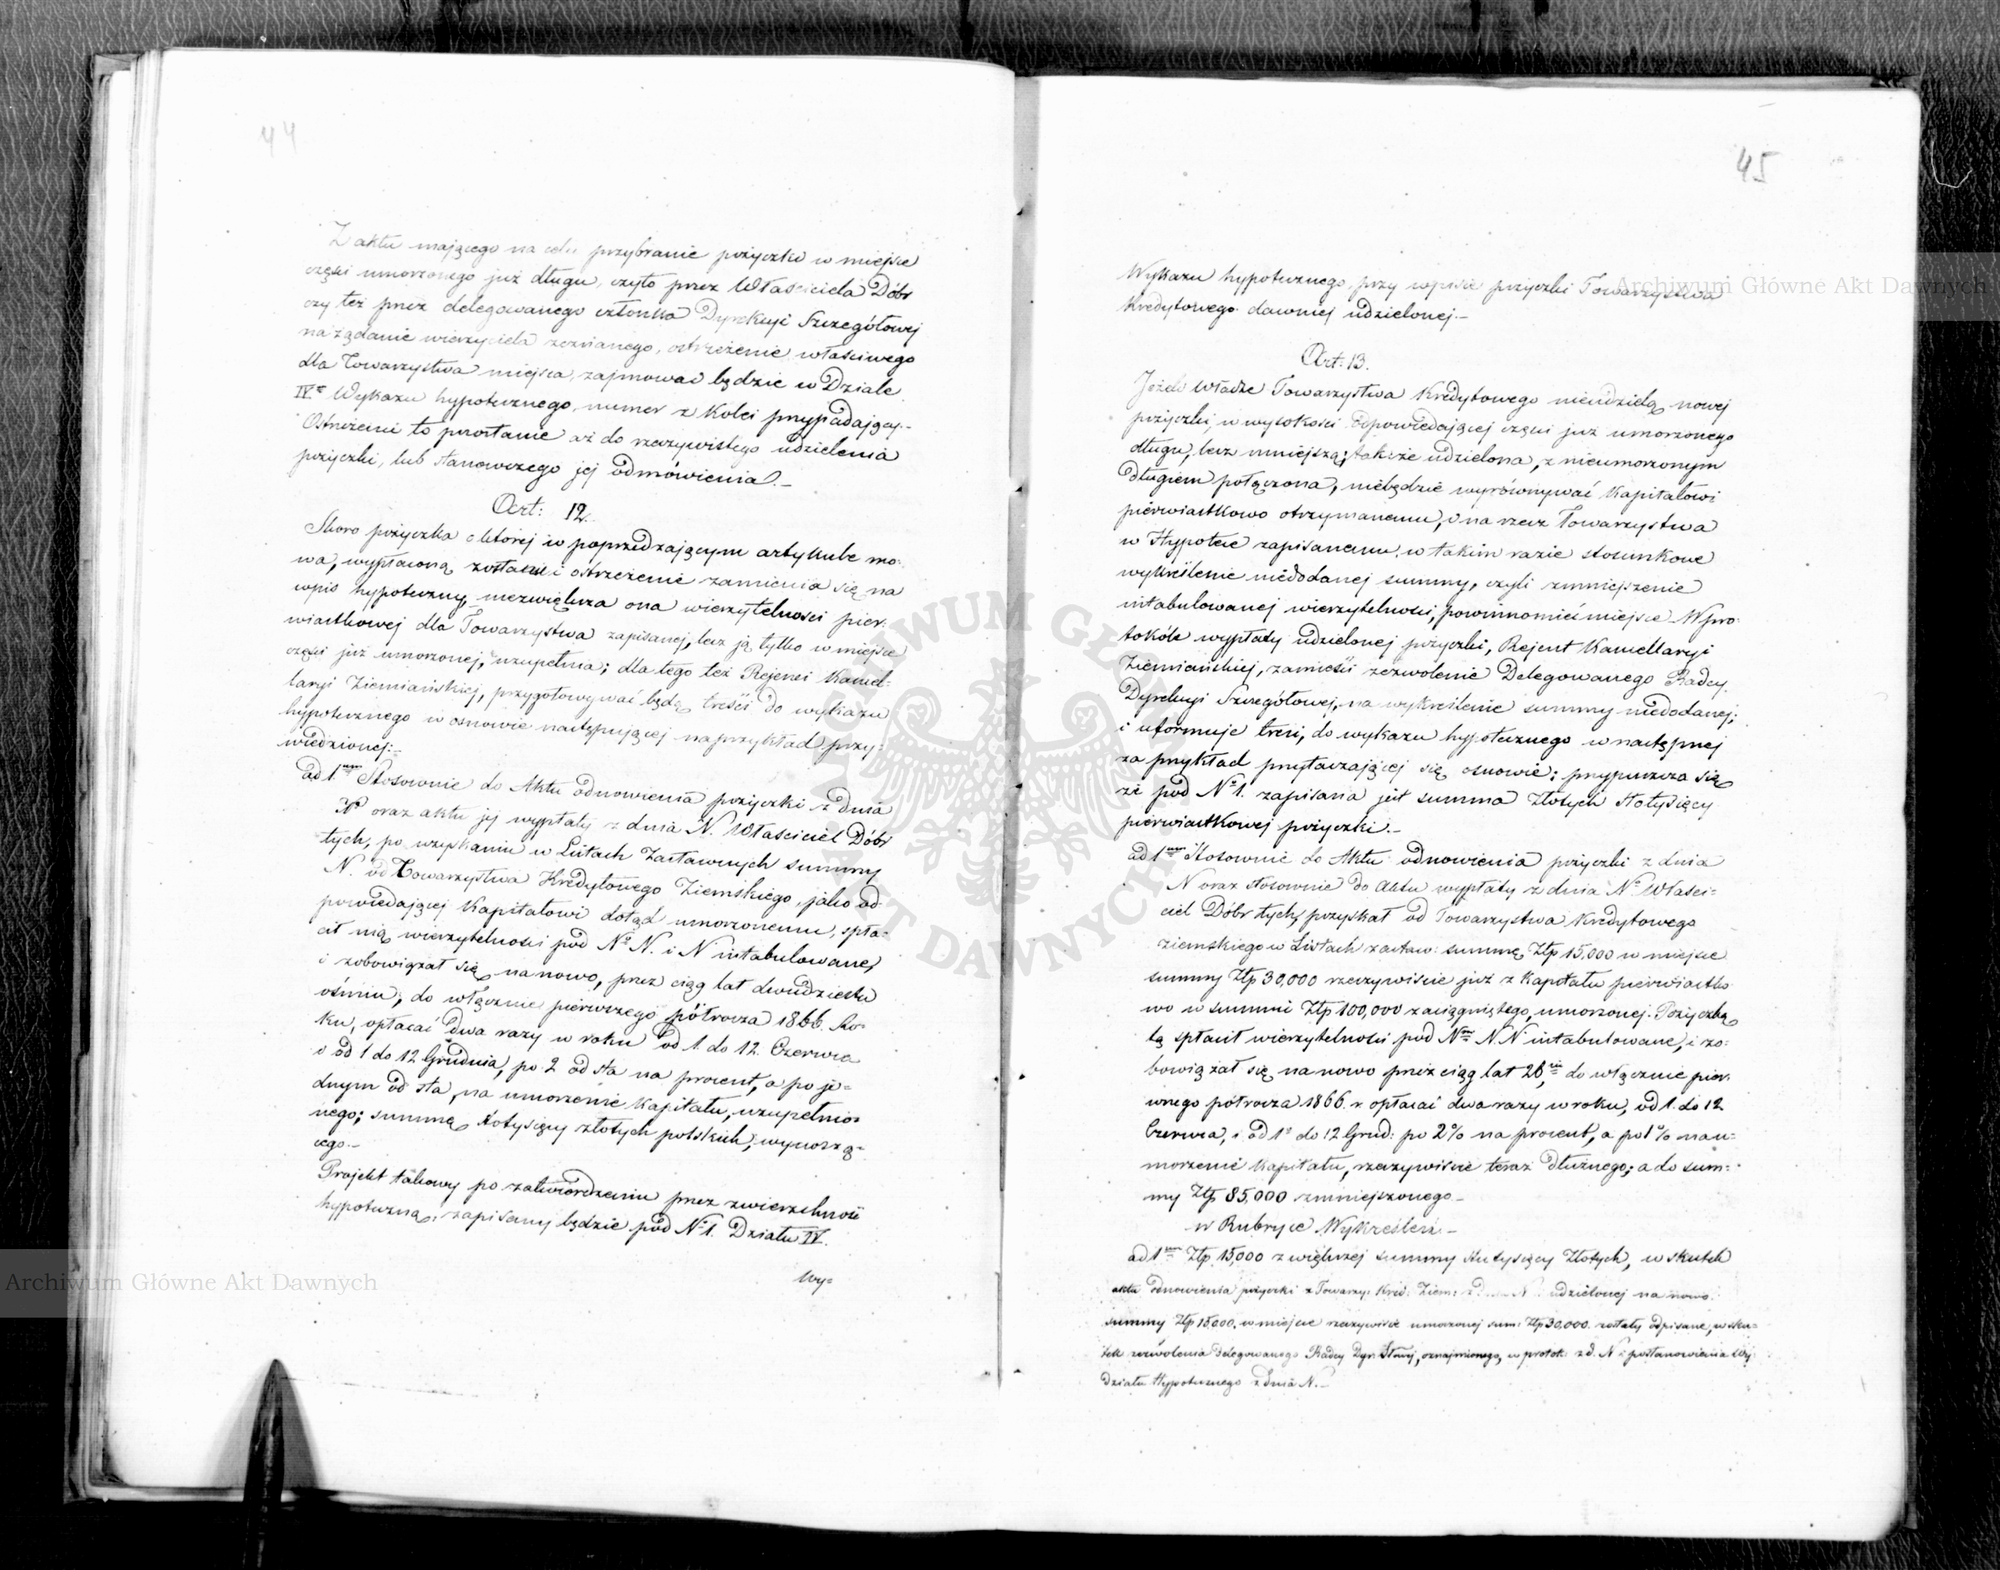 44
Z aktu mającego na celu przybranie pożyczki w miejsce
części umorzonego już długu, czyto przez Właściciela Dóbr
czy też przez delegowanego członka Dyrekcyi Szczegółowej
na żądanie wierzyciela zeznanego, ostrzeżenie właściwego
dla Towarzystwa miejsca, zajmować będzie w Dziale
IVm Wykazu hypotecznego, numer z kolei przypadający.-
Ostrzeżenie to pozostanie aż do rzeczywistego udzielenia
pożyczki, lub stanowczego jej odmówienia.-
Art: 12.
Skoro pożyczka o której w poprzedzającym artykule mo-
wa, wypłaconą zostanie i ostrzeżenie zamienia się na
wpis hypoteczny, niezwiększa ona wierzytelności pier-
wiastkowej dla Towarzystwa zapisanej, lecz ją tylko w miejsce
części już umorzonej, uzupełnia; dla tego też Rejenci Kancel-
laryi Ziemiańskiej, przygotowywać będą treści do wykazu
hypotecznego w osnowie następującej naprzykład przy-
wiedzionej:-
ad 1um Stosownie do Aktu odnowienia pożyczki z dnia
N. oraz aktu jej wypłaty z dnia N. Właściciel Dóbr
tych, po uzyskaniu w Listach Zastawnych summy
N. od Towarzystwa Kredytowego Ziemskiego, jako od-
powiedającej Kapitałowi dotąd umorzonemu, spła-
cił nią wierzytelności pod No N. i N intabulowane,
i zobowiązał się nanowo, przez ciąg lat dwudziestu
ośmiu, do włącznie pierwszego półrocza 1866. Ro-
ku, opłacać dwa razy w roku od 1. do 12. Czerwca
i od 1 do 12 Grudnia, po 2 od sta na procent, a po je-
dnym od sta, na umorzenie Kapitału, uzupełnio-
nego; summę stotysięcy złotych polskich, wynoszą-
cego.-
Projekt takowy po zatwierdzeniu przez zwierzchność
hypoteczną, zapisany będzie pod No 1. Działu IV.
Wy-
45
Wykazu hypotecznego, przy wpisie pożyczki Towarzystwa
Kredytowego dawniej udzielonej.-
Art: 13.
Jeżeli Władze Towarzystwa Kredytowego nieudzielą nowej
pożyczki w wysokości odpowiedającej części już umorzonego
długu, lecz mniejszą; także udzielona, z nieumorzonym
długiem połączona, niebędzie wyrównywać Kapitałowi
pierwiastkowo otrzymanemu, i na rzecz Towarzystwa
w Hypotece zapisanemu, w takim razie stosunkowe
wykreślenie niedodanej summy, czyli zmniejszenie
intabulowanej wierzytelności, powinno mieć miejsce. W pro-
tokóle wypłaty udzielonej pożyczki, Rejent Kancellaryi
Ziemiańskiej, zamieści zezwolenie Delegowanego Radcy
Dyrekcyi Szczegółowej, na wykreślenie summy niedodanej;
i uformuje treści, do wykazu hypotecznego w następnej
za przykład przytaczającej się osnowie; przypuszcza się
że pod No 1. zapisana jest summa Złotych Stotysięcy
pierwiastkowej pożyczki.-
ad 1um Stosownie do Aktu odnowienia pożyczki z dnia
N oraz stosownie do Aktu wypłaty z dnia N. Właści-
ciel Dóbr tych, pozyskał od Towarzystwa Kredytowego
ziemskiego w Listach zastaw: summę Złp 15,000 w miejsce
summy Złp 30,000 rzeczywiście już z Kapitału pierwiastko-
wo w summie Złp 100,000 zaciągniętego, umorzonej. Pożyczką
tą spłacił wierzytelności pod Nmi N N intabulowane, i zo-
bowiązał się na nowo przez ciąg lat 28miu, do włącznie pier-
wszego półrocza 1866. r. opłacać dwa razy w roku, od 1. do 12
Czerwca, i od 1o do 12 Grud: po 2% na procent, a po 1% na u-
morzenie Kapitału, rzeczywiście teraz dłużnego; a do sum-
my Złp 85,000 zmniejszonego.-
w Rubryce Wykreśleń.-
ad 1um Złp 15,000 z większej summy stutysięcy Złotych, w skutek
aktu odnowienia pożyczki z Towarzy: Kred: Ziem: z dnia N. udzielonej na nowo
summy Złp 15,000. w miejsce rzeczywiście umorzonej sum: Złp 30,000. zostały odpisane, w sku-
tek zezwolenia Delegowanego Radcy Dyr: Słowej, oznajmionego, w protok: z d. N i postanowienia Wy-
działu Hypotecznego z dnia N.-
Archiwum Główne Akt Dawnych
Archiwum Główne Akt Dawnych
ARCHIWUM GŁÓWNE AKT DAWNYCH